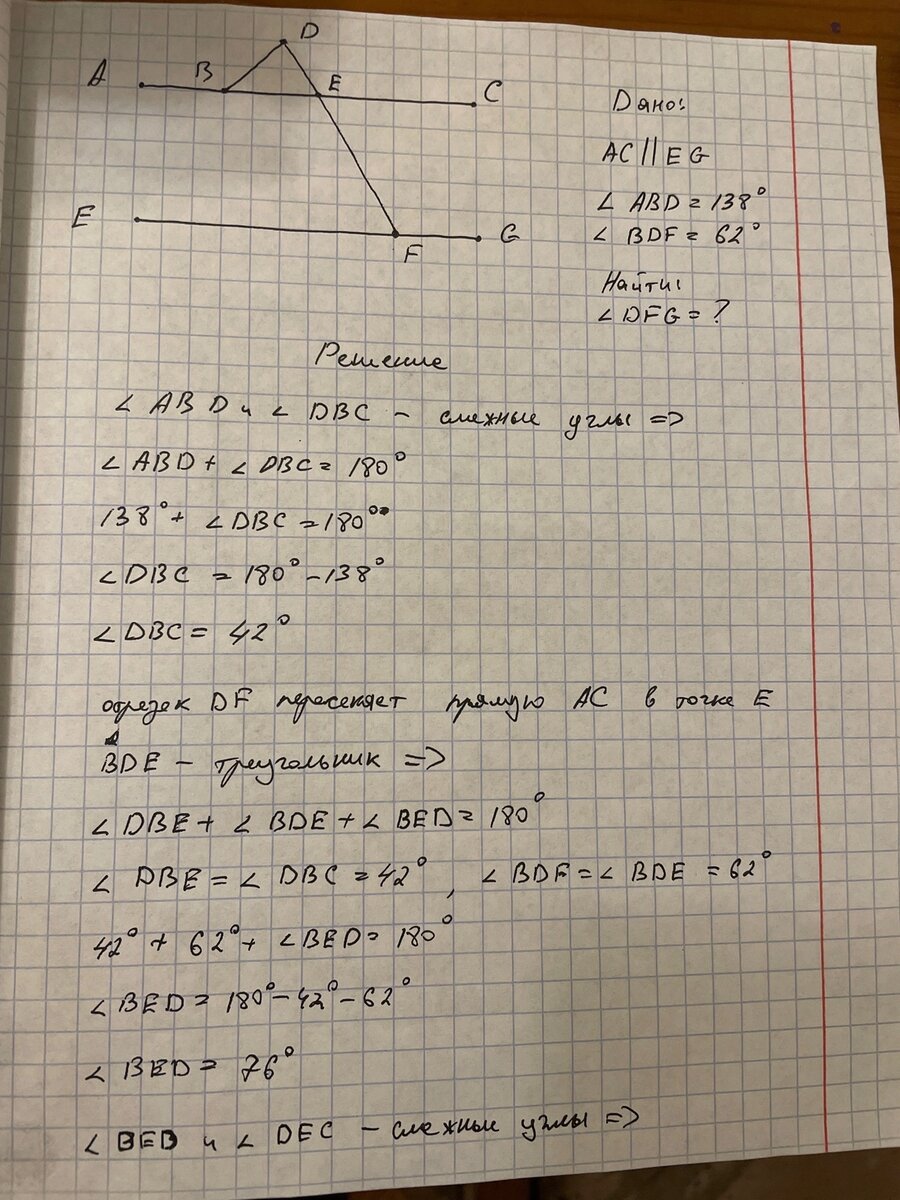 D
A B E C
E F G
Дано:
AC || EG
∠ ABD = 138°
∠ BDF = 62°
Найти:
∠ DFG = ?
Решение
∠ ABD и ∠ DBC – смежные углы =>
∠ ABD + ∠ DBC = 180°
138° + ∠ DBC = 180°
∠ DBC = 180° – 138°
∠ DBC = 42°
отрезек DF пересекает прямую AC в точке E
BDE – треугольник =>
∠ DBE + ∠ BDE + ∠ BED = 180°
∠ DBE = ∠ DBC = 42°, ∠ BDF = ∠ BDE = 62°
42° + 62° + ∠ BED = 180°
∠ BED = 180° – 42° – 62°
∠ BED = 76°
∠ BED и ∠ DEC – смежные углы =>